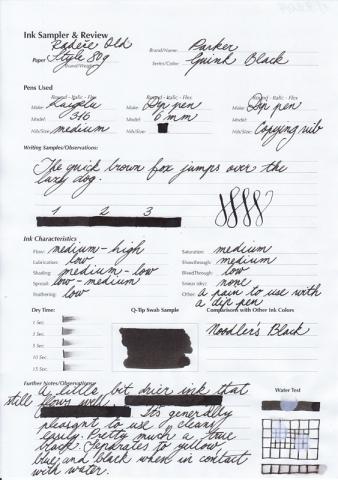 Ink Sampler & Review
Paper Style 80g
Brand/Name: Parker
Brand/Weight
Series/Color: Quink Black
Pens Used
Round - Italic - Flex Round - Italic - Flex Round - Italic - Flex
Make: Make: Dip pen Make: Dip pen
Model: 316 Model: Model:
Nib/Size: medium Nib/Size: 6 mm Nib/Size: Copying nib
Writing Samples/Observations:
The quick brown fox jumps over the
lazy dog.
1 2 3
Ink Characteristics
Flow: medium - high Saturation: medium
Lubrication: low Showthrough: medium
Shading: medium - low Bleedthrough: low
Spread: low - medium Smear (dry): none
Feathering: low Other: a pain to use with
a dip pen
Dry Time: Q-Tip Swab Sample Comparisons with Other Ink Colors
1 Sec. Noodler's Black
3 Sec.
5 Sec.
10 Sec.
15 Sec.
Further Notes/Observations: Water Test
A little bit drier ink that
still flows well.
Its generally
pleasant to use & cleans
easily. Pretty much a true
black. Separates to yellow,
blue and black when in contact
with water.